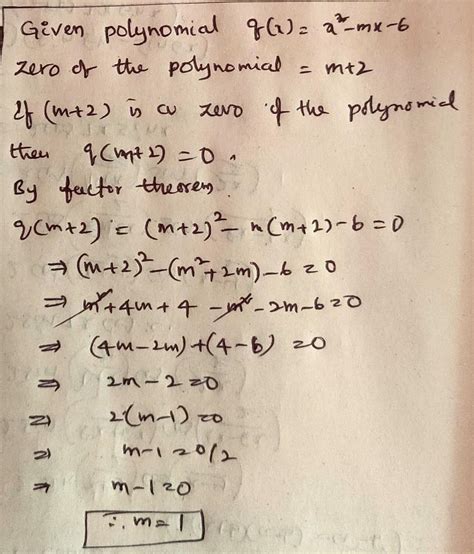 Given polynomial q(x) = x²-mx-6
zero of the polynomial = m+2
If (m+2) is a zero of the polynomial
then q(m+2) = 0.
By factor theorem
q(m+2) = (m+2)² - m(m+2)-6 = 0
⇒ (m+2)² - (m²+2m) - 6 = 0
⇒ m² + 4m + 4 - m² - 2m - 6 = 0
⇒ (4m-2m)+(4-6) = 0
⇒ 2m-2=0
⇒ 2(m-1) = 0
⇒ m-1 = 0/2
⇒ m-1=0
∴ m=1